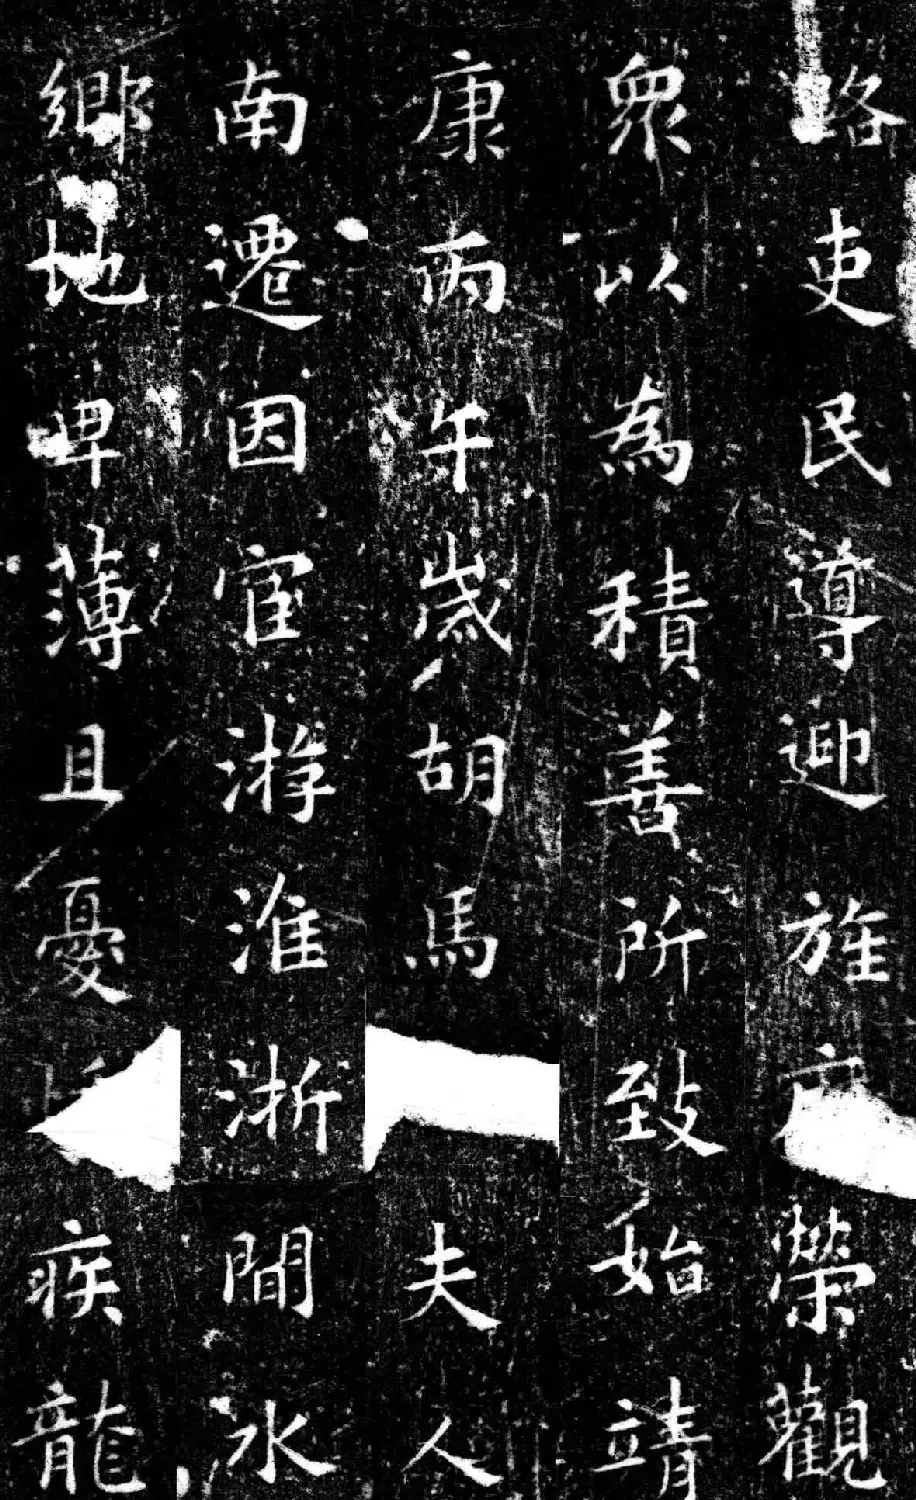 路吏民導迎旌榮觀
衆以為積善所致始靖
康丙午歲胡馬夫人
南遷因宦游淮浙間水
鄉地卑薄且憂疾龍